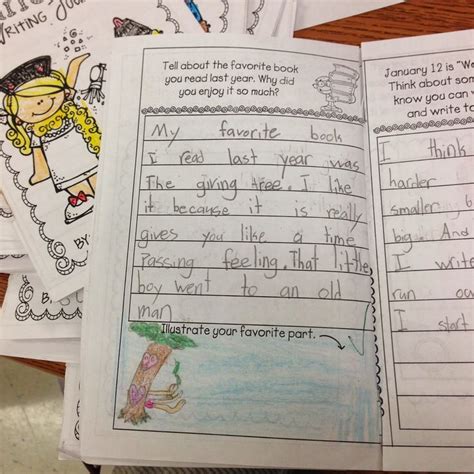 WRITING JOU
BY:
BY:
Tell about the favorite book
you read last year. Why did
you enjoy it so much?
My favorite book
I read last year was
The giving tree. I like
it because it is really
gives you like a time
Passing feeling. That little
boy went to an old
man
Illustrate your favorite part.
January 12 is "We
Think about som
know you can w
and write to
I think
harder
smaller b
big. And
I write
run ou
I start